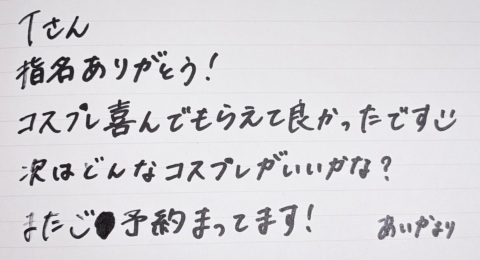 Tさん
指名ありがとう!
コスプレ喜んでもらえて良かったです
次はどんなコスプレがいいかな?
またご予約まってます!
あいかより